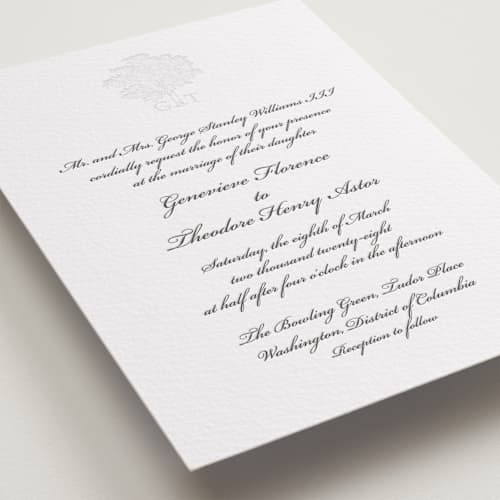 G&T
Mr. and Mrs. George Stanley Williams III
cordially request the honor of your presence
at the marriage of their daughter
Genevieve Florence
to
Theodore Henry Astor
Saturday, the eighth of March
two thousand twenty-eight
at half after four o'clock in the afternoon
The Bowling Green, Tudor Place
Washington, District of Columbia
Reception to follow